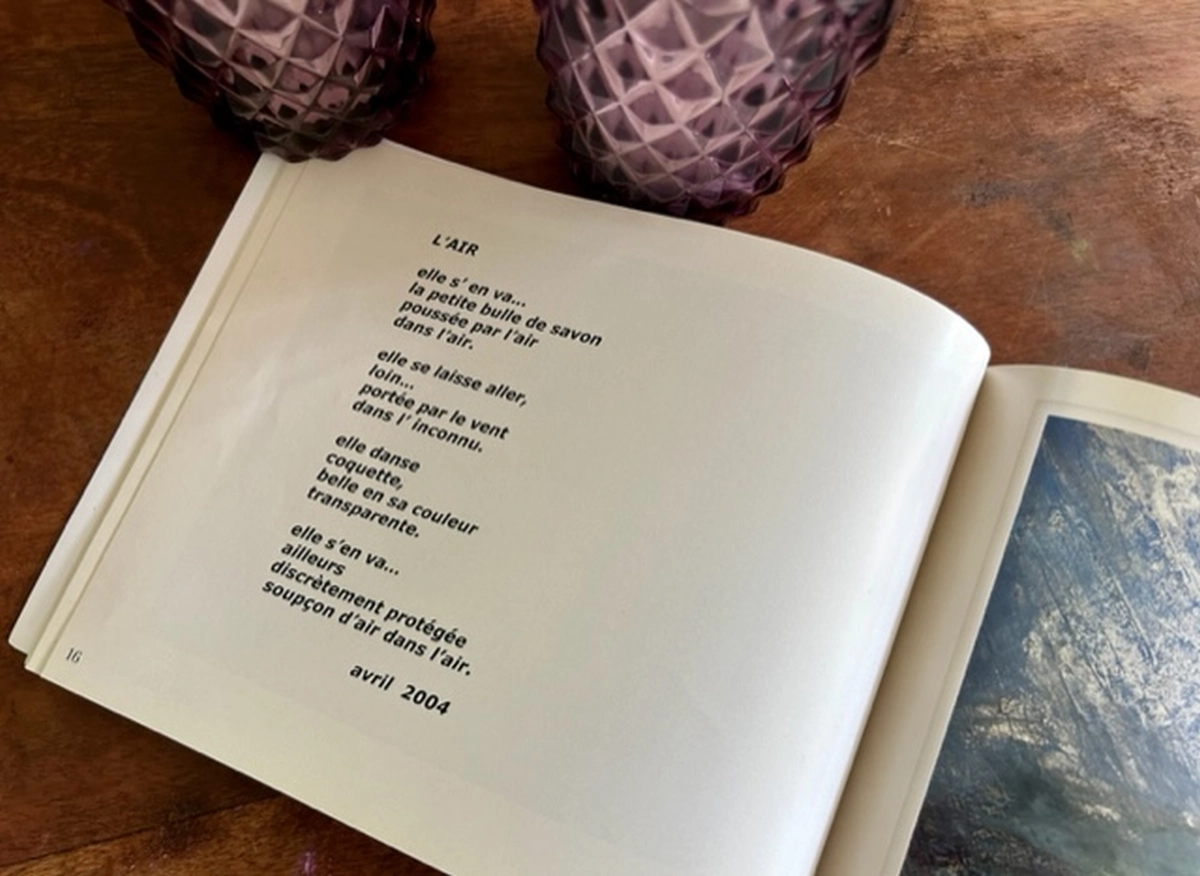 L'AIR
elle s' en va...
la petite bulle de savon
poussée par l'air
dans l'air.
elle se laisse aller,
loin...
portée par le vent
dans l' inconnu.
elle danse
coquette,
belle en sa couleur
transparente.
elle s'en va...
ailleurs
discrètement protégée
soupçon d'air dans l'air.
avril 2004
16